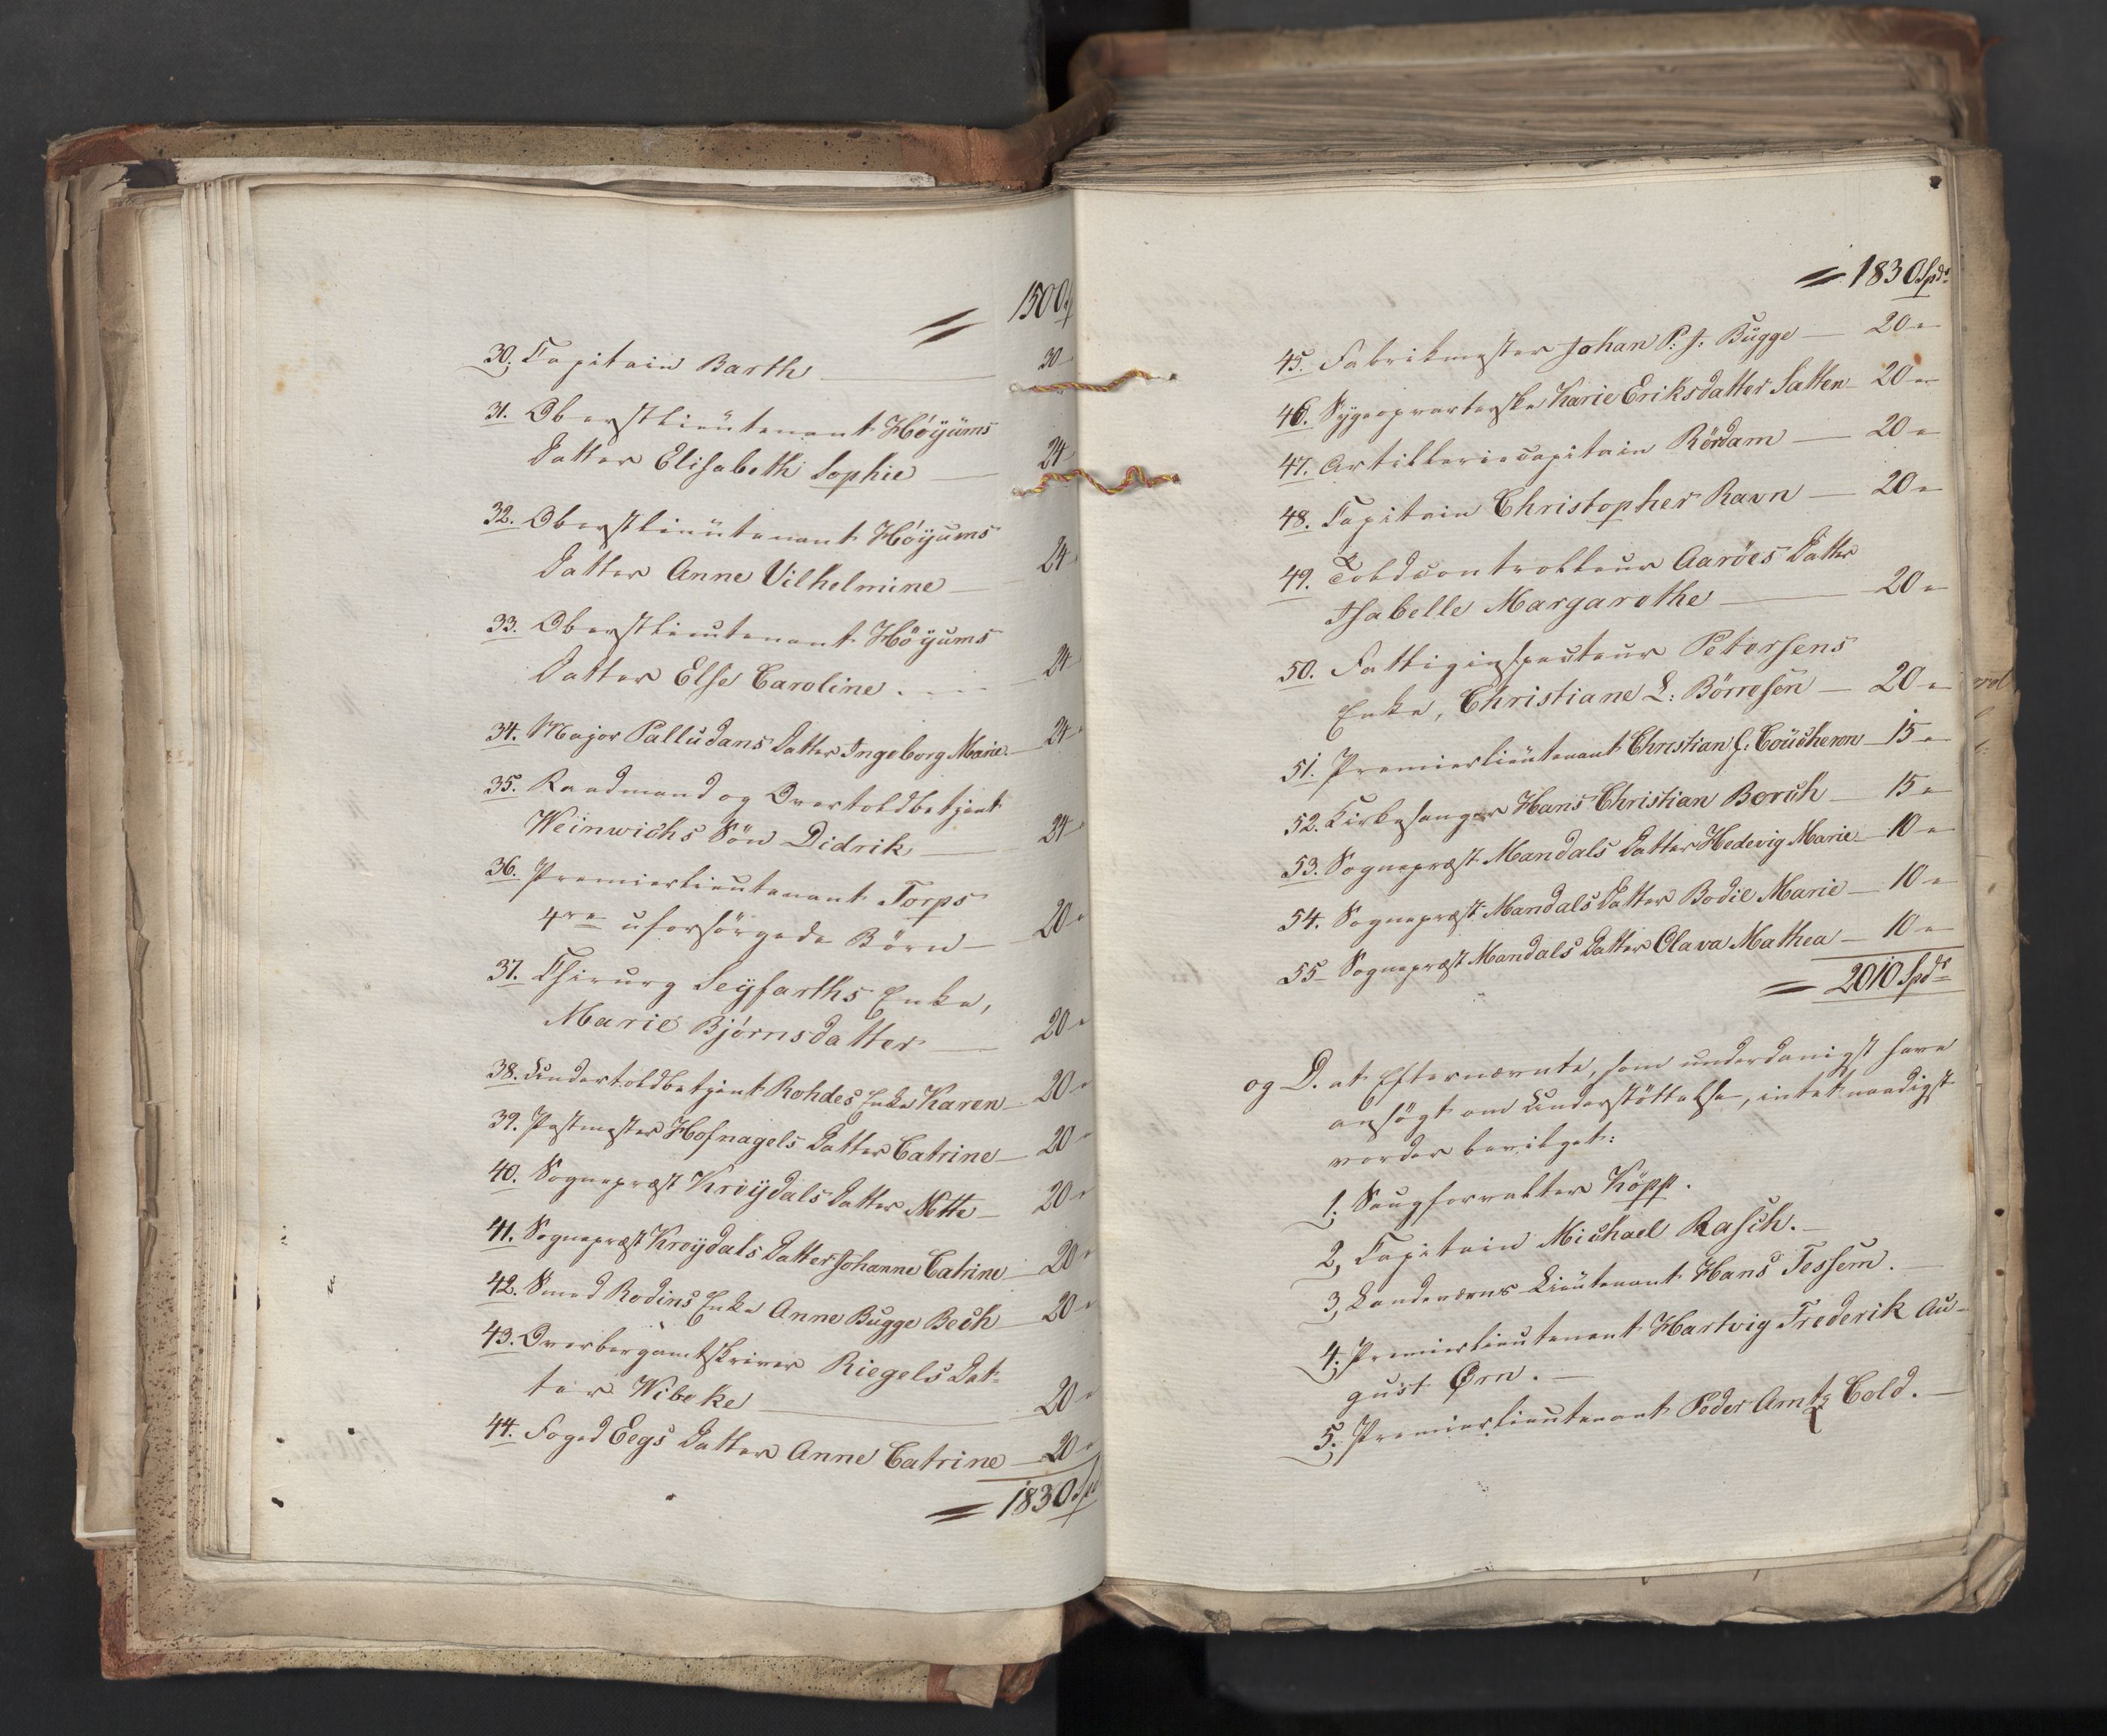 1500
30. Capitain Barth — 30
31. Oberstlieutenant Høÿums
Datter Elisabeth Sophie — 24
32. Oberstlieutenant Høÿums
Datter Anne Vilhelmine — 24
33. Oberstlieutenant Høÿums
Datter Else Caroline . — 24
34. Major Palludans Datter Ingeborg Marie — 24
35. Raadmand og Overtoldbetjent
Weinwichs Sön Didrik — 24
36. Premierlieutenant Torps
4re uforsörgede Börn — 20
37. Chirurg Seyfarths Enke,
Marie Bjørnsdatter — 20
38. Undertoldbetjent Rohdes Enke Karen — 20
39. Postmester Hofnagels Datter Catrine — 20
40. Sognepræst Kröydals Datter Mette — 20
41. Sognepræst Kröydals Datter Johanne Catrine — 20
42. Smed Rodins Enke Anne Bugge Bech — 20
43. Overbergamtskriver Riegels Dat-
ter Wibeke — 20
44. Foged Eegs Datter Anne Catrine — 20
= 1830 Spd
= 1830 Spdr
45. Fabrikmester Johan P. J. Bugge — 20 "
46. Sygeopvarterske Karie Eriksdatter Satten — 20 "
47. Artilleriecapitain Rördam — 20 "
48. Capitain Christopher Ravn — 20 "
49. Toldcontrolleur Aaröes Datter
Isabelle Margarethe — 20 "
50. Fattiginspecteur Petersens
Enke, Christiane L. Börresen — 20 "
51. Premierlieutenant Christian G. Coucheron — 15 "
52. Kirkesanger Hans Christian Borch — 15 "
53. Sognepræst Mandals Datter Hedevig Marie — 10 "
54. Sognepræst Mandals Datter Bodil Marie — 10 "
55 Sognepræst Mandals Datter Olava Mathea — 10 "
= 2010 Spdr
og D. at Efternævnte, som underdanigst have
ansögt om Understöttelse, intet naadigst
vorder bevilget:
1. Saugforvalter Köpp.
2, Capitain Michael Rasch. —
3, Landeværns Lieutenant Hans Tessem. —
4. Premierlieutenant Hartvig Frederik Au-
gust Ørn. —
5. Premierlieutenant Peder Amtz Cold. —